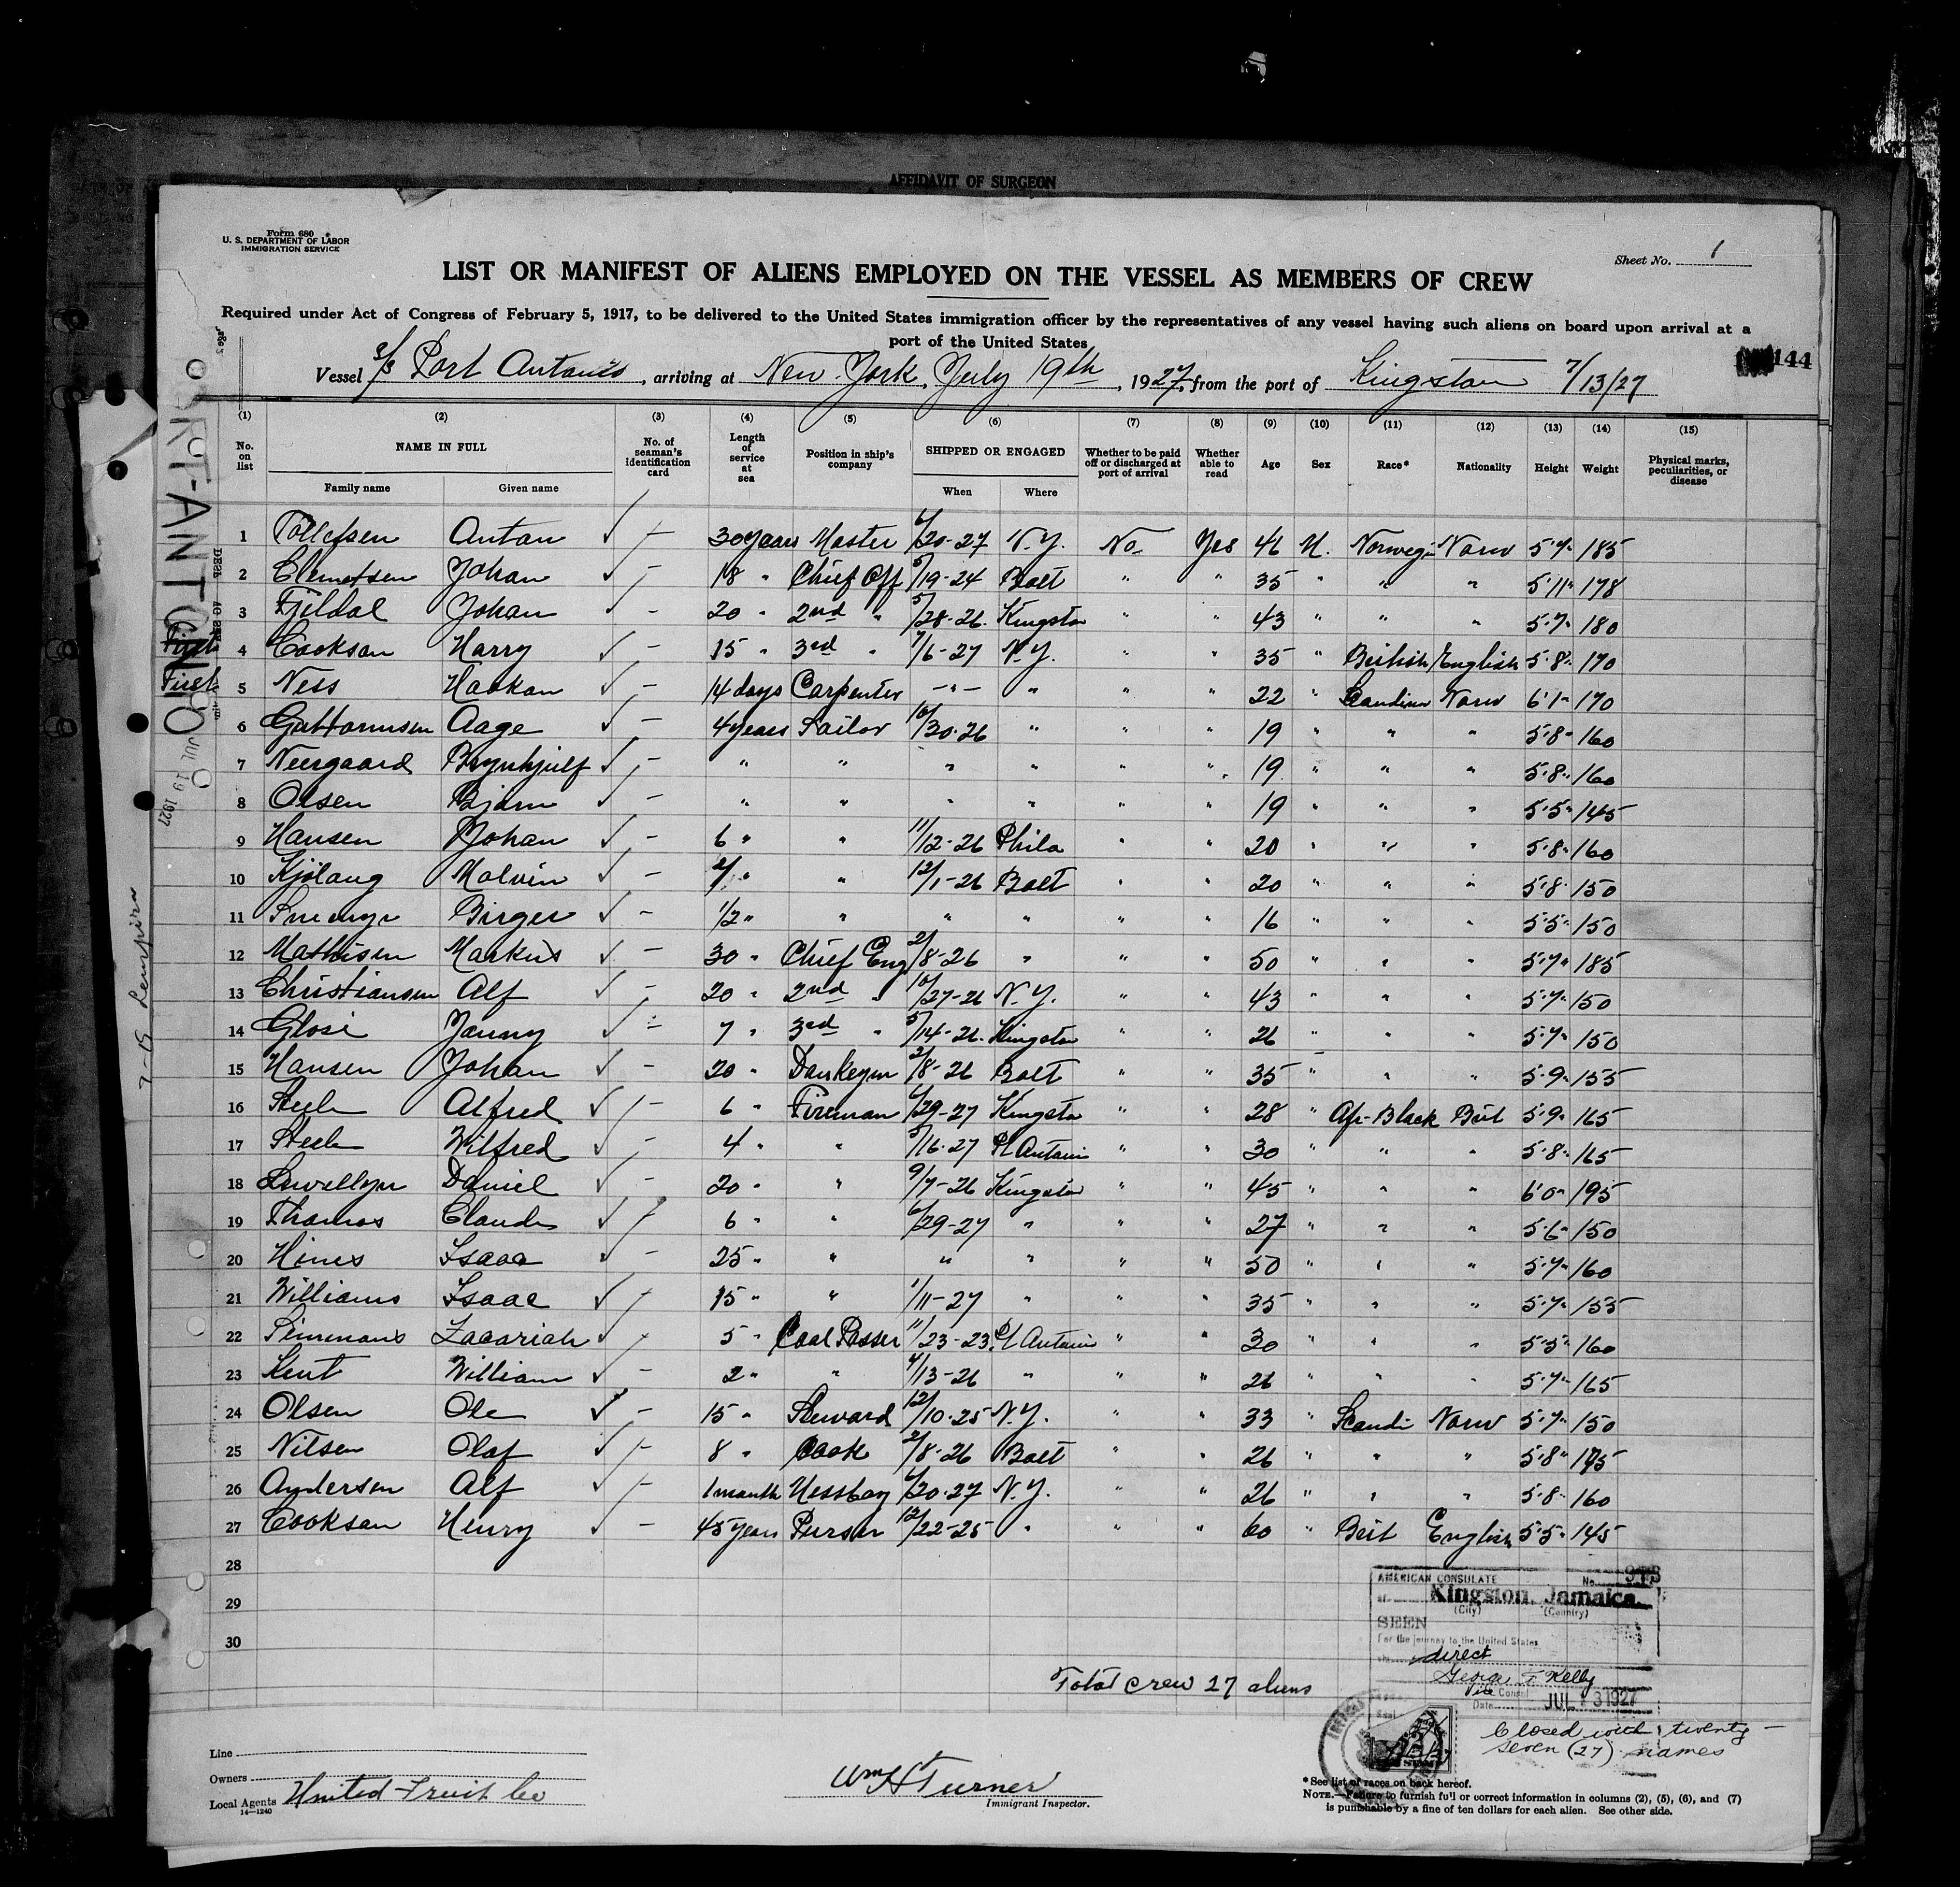 AFFIDAVIT OF SURGEON
Form 680
U. S. DEPARTMENT OF LABOR
IMMIGRATION SERVICE
Sheet No. 1
LIST OR MANIFEST OF ALIENS EMPLOYED ON THE VESSEL AS MEMBERS OF CREW
Required under Act of Congress of February 5, 1917, to be delivered to the United States immigration officer by the representatives of any vessel having such aliens on board upon arrival at a
port of the United States
144
Vessel s/s Port Antonio, arriving at New York, July 19th, 1927, from the port of Kingston 7/13/27
(1) (2) (3) (4) (5) (6) (7) (8) (9) (10) (11) (12) (13) (14) (15)
No. on list NAME IN FULL No. of seaman's identification card Length of service at sea Position in ship's company SHIPPED OR ENGAGED Whether to be paid off or discharged at port of arrival Whether able to read Age Sex Race* Nationality Height Weight Physical marks, peculiarities, or disease
Family name Given name When Where
1 Tollefsen Anton ✓ — 30 years Master 6/20-27 N.Y. No Yes 46 M. Norwegi Norw 5'7" 185
2 Clemetsen Johan ✓ — 18 " Chief Off 5/19-24 Balt " " 35 " " " 5'11" 178
3 Fjeldal Johan ✓ — 20 " 2nd " 5/28-26. Kingston " " 43 " " " 5'7" 180
First 4 Cookson Harry ✓ — 15 " 3rd " 7/6-27 N.Y. " " 35 " British English 5'8" 170
First 5 Ness Haakon ✓ — 14 days Carpenter — " — " " " 22 " Scandinv Norw 6'1" 170
6 Guttormsen Aage ✓ — 4 years Sailor 10/30-26 " " " 19 " " " 5'8" 160
7 Neergaard Brynhjulf ✓ — " " " " " " 19 " " " 5'8" 160
8 Olsen Bjarne ✓ — " " " " " " 19 " " " 5'5" 145
9 Hansen Johan ✓ — 6 " " 11/12-26 Phila " " 20 " " " 5'8" 160
10 Kjölang Malvin ✓ — " " 12/1-26 Balt " " 20 " " " 5'8" 150
11 Birger ✓ — 1/2 " " " " " " 16 " " " 5'5" 150
12 Mathisen Markus ✓ — 30 " Chief Eng 2/8-26 " " " 50 " " " 5'7" 185
13 Christiansen Alf ✓ — 20 " 2nd " 10/27-26 N.Y. " " 43 " " " 5'7" 150
14 Glosi Jonny ✓ — 7 " 3rd " 5/14-26. Kingston " " 26 " " " 5'7" 150
15 Hansen Johan ✓ — 20 " Donkeym 2/8-26 Balt " " 35 " " " 5'9" 155
16 Steele Alfred ✓ — 6 " Fireman 6/29-27 Kingsto " " 28 " Afr-Black Brit 5'9" 165
17 Steele Wilfred ✓ — 4 " " 5/16-27 Pt Antonio " " 30 " " " 5'8" 165
18 Lewellyn Daniel ✓ — 20 " " 9/7-26 Kingston " " 45 " " " 6'0" 195
19 Thomas Claude ✓ — 6 " " 6/29-27 " " " 27 " " " 5'6" 150
20 Hines Isaac ✓ — 25 " " " " " " 50 " " " 5'7" 160
21 Williams Isaac ✓ — 15 " " 1/11-27 " " " 35 " " " 5'7" 155
22 Simmons Zacariah ✓ — 5 " Coal Passer 11/23-23. Pt Antonio " " 30 " " " 5'5" 160
23 Kent William ✓ — 2 " " 4/13-26 " " " 26 " " " 5'7" 165
24 Olsen Ole ✓ — 15 " Steward 12/10-25 N.Y. " " 33 " Scandi Norw 5'7" 150
25 Nilsen Olaf ✓ — 8 " Cook 2/8-26 Balt " " 26 " " " 5'8" 175
26 Andersen Alf ✓ — 1 month Messboy 6/20-27 N.Y. " " 26 " " " 5'8" 160
27 Cookson Henry ✓ — 45 years Purser 12/22-25 " " " 60 " Brit English 5'5" 145
28
29
30
Total crew 27 aliens
AMERICAN CONSULATE
No.
Kingston, Jamaica.
(City) (Country)
SEEN
For the journey to the United States
direct
George F. Kelly
Vice Consul
Date JUL 13 1927
Closed with twenty-
seven (27) names
Line
Owners
Local Agents United Fruit Co
14—1240
Wm H Turner
Immigrant Inspector.
*See list of races on back hereof.
NOTE.—Failure to furnish full or correct information in columns (2), (5), (6), and (7)
is punishable by a fine of ten dollars for each alien. See other side.
PORT-ANTONIO
JUL 19 1927
7-15 Lempira